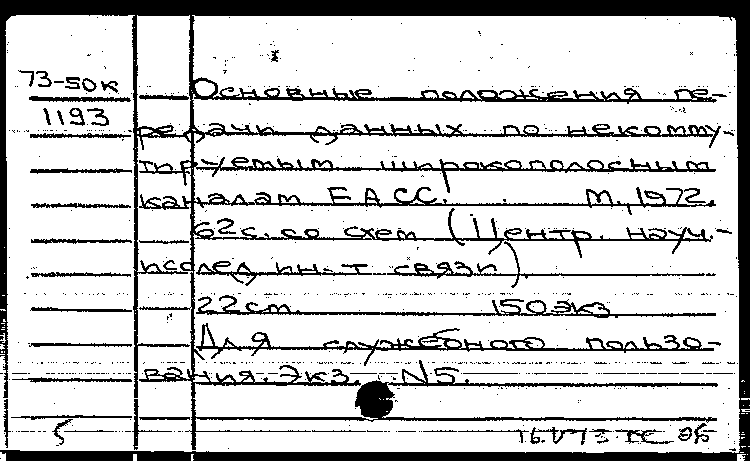 73-50к
1193
Основные положения пе-
редачи данных по некомму-
тируемым широкополосным
каналам ЕАСС. М., 1972.
62с. со схем (Центр. науч.-
исслед ин-т связи).
22см. 150экз.
Для служебного пользо-
вания. Экз. N5.
5
16.V-73